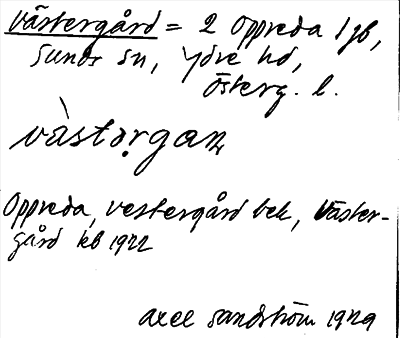 Västergård = 2 Oppreda 1 gb,
Sunds sn, Ydre hd,
Österg. l.
vàstọrgan
Oppreda, vestergård bek, Väster-
gård kb 1922
Axel Sandström 1929